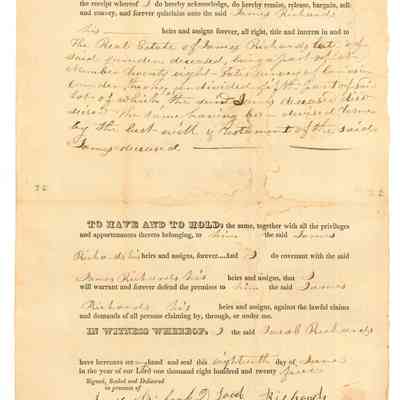 the receipt whereof I do hereby acknowledge, do hereby remise, release, bargain, sell
and convey, and forever quitclaim unto the said James Richards
his heirs and assigns forever, all right, title and interest in and to
The Real Estate of James Richards late of
said deceased, being a part of lot
Number twenty eight
undivided part of said
lot of which the said James deceased died
the same having been devised to me
by the last will & Testament of the said
James deceased
TO HAVE AND TO HOLD, the same, together with all the privileges
and appurtenances thereto belonging, to him the said James
Richards his heirs and assigns, forever.—And I do covenant with the said
James Richards his heirs and assigns, that I
will warrant and forever defend the premises to him the said James
Richards his heirs and assigns, against the lawful claims
and demands of all persons claiming by, through, or under me.
IN WITNESS WHEREOF, I the said Jacob Richards
have hereunto set my hand and seal this eighteenth day of June
in the year of our Lord one thousand eight hundred and twenty five
Signed, Sealed and Delivered
in presence of
Jacob Richards